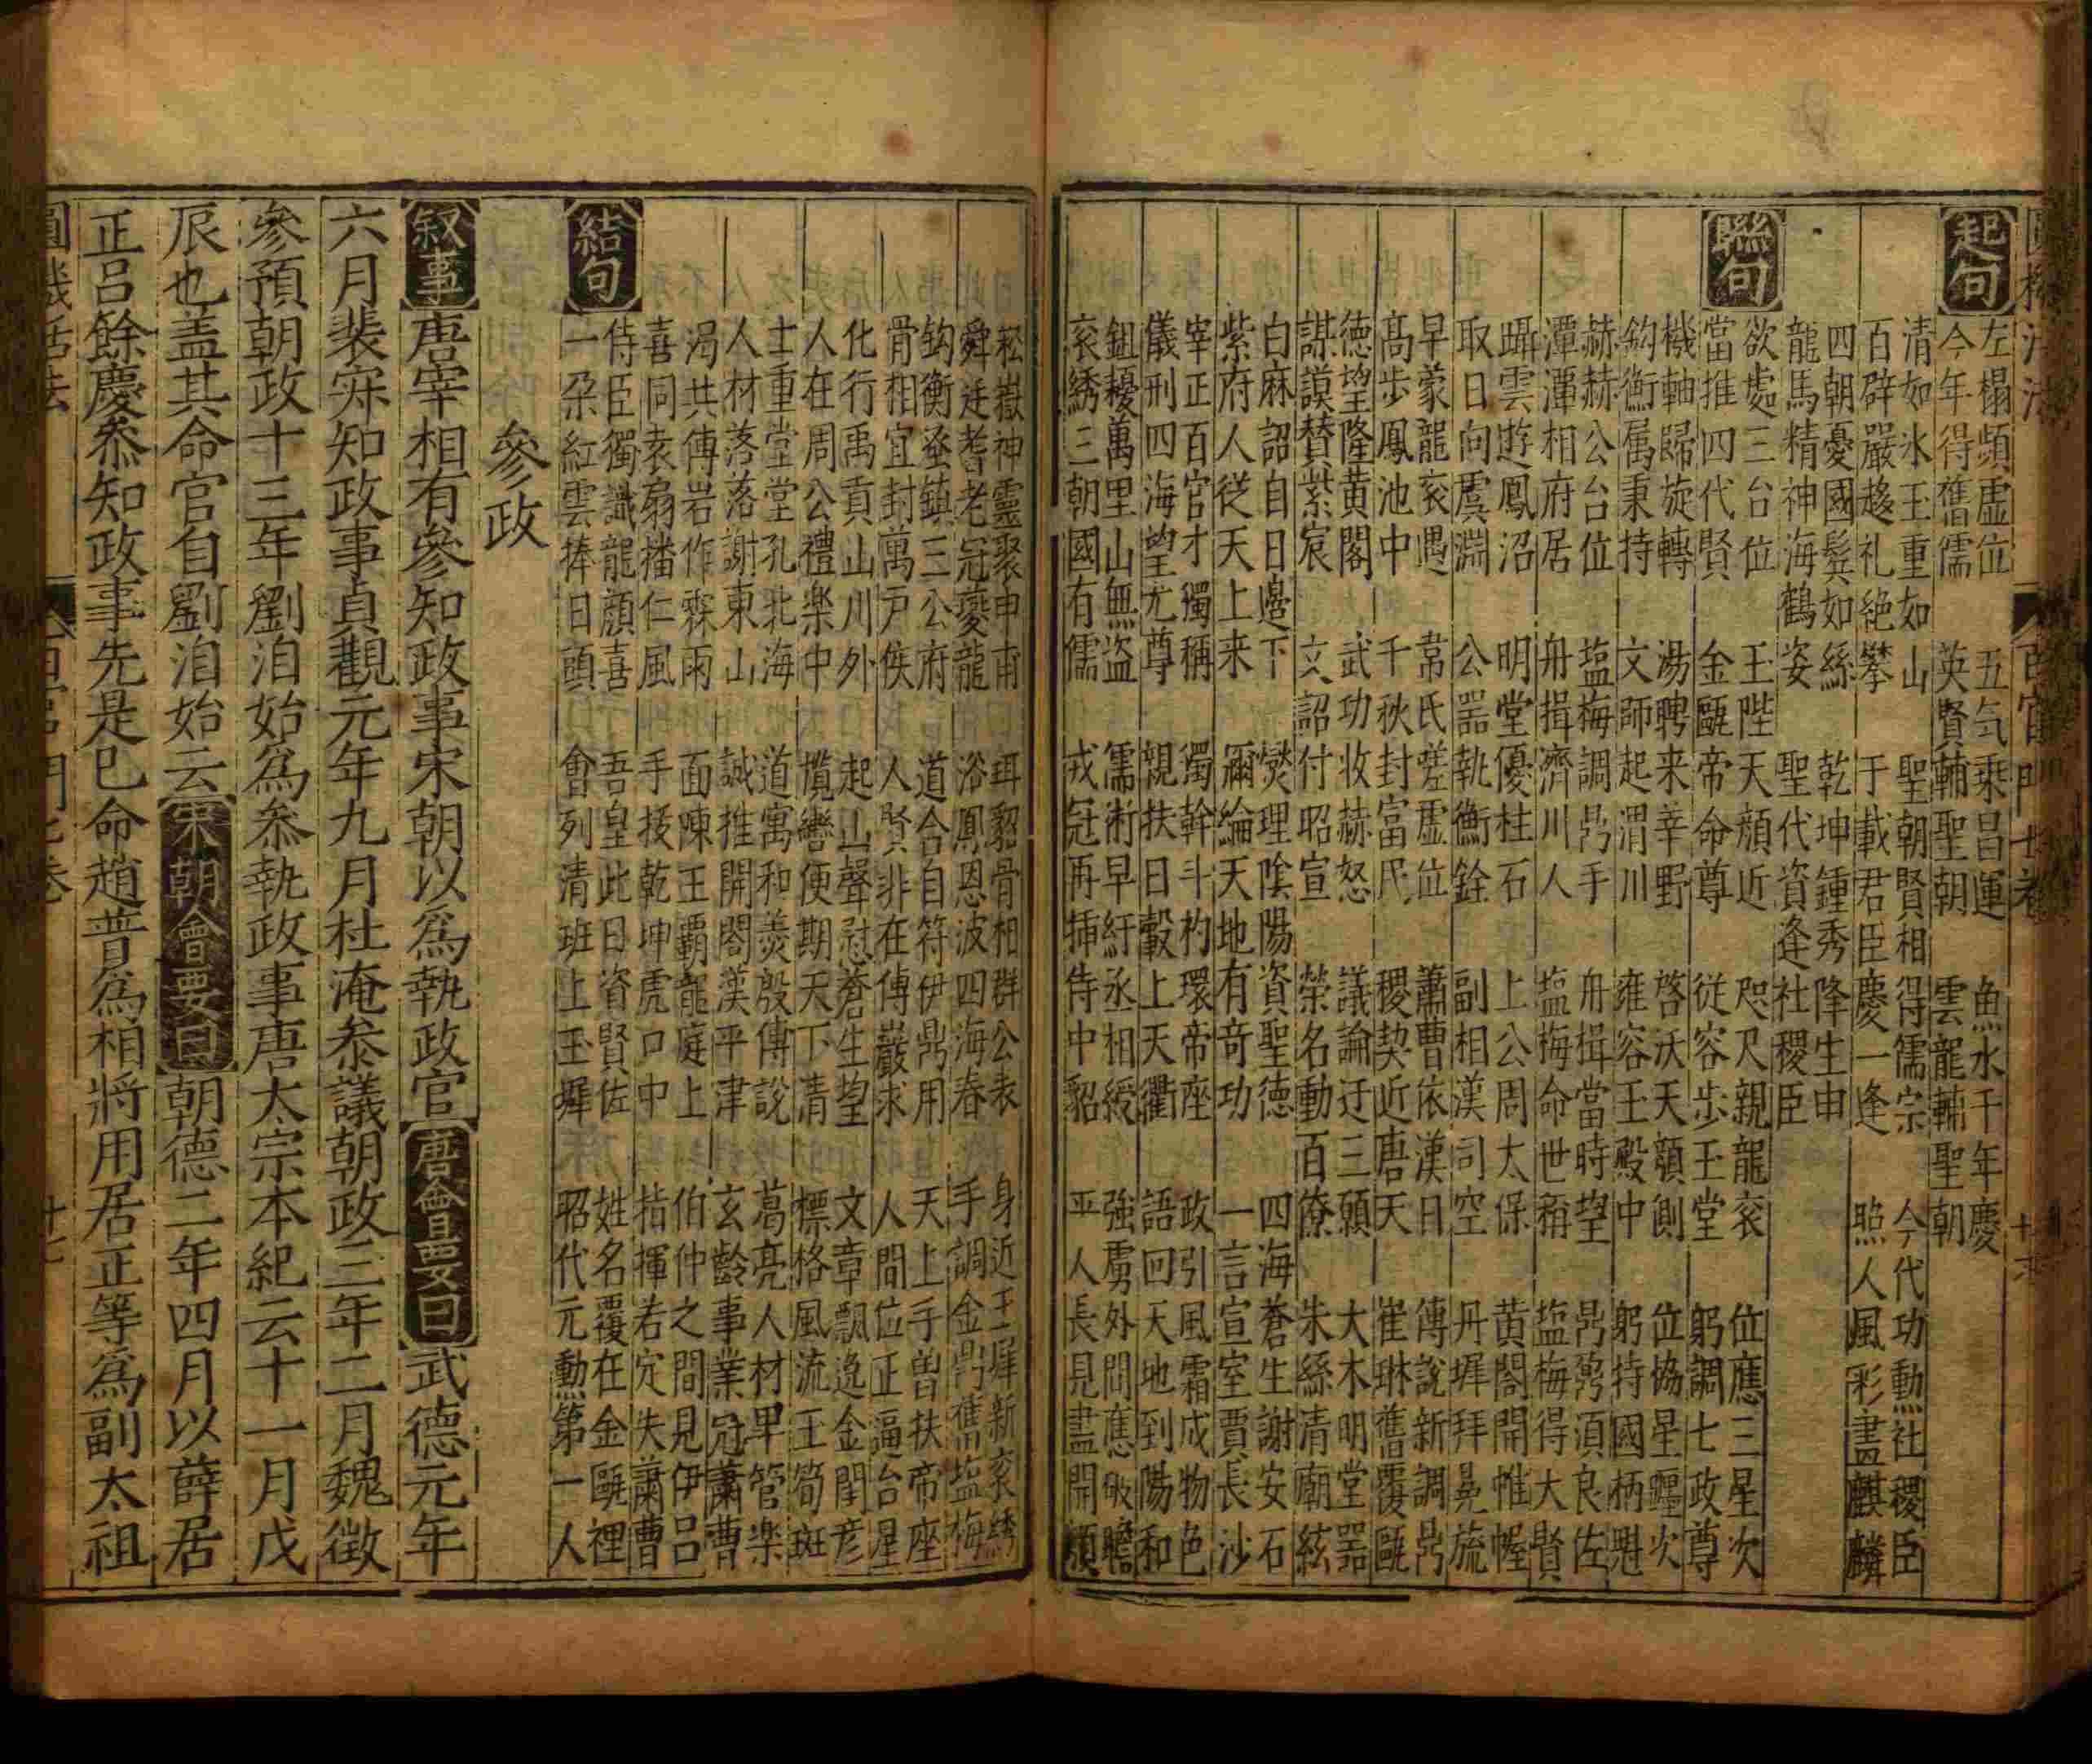 圓機活法 百官門七卷 十六
起句 左榻頻虛位 五気乗昌運 魚水千年慶
今年得舊儒 英賢輔聖朝 雲龍輔聖朝
清如氷玉重如山 聖朝賢相得儒宗 今代功勳社稷臣
百辟嚴趍礼絶攀 于載君臣慶一逢 照人風彩畫麒麟
四朝憂國鬂如絲 乾坤鍾秀降生申
龍馬精神海鶴姿 聖代資逢社稷臣
聯句 欲處三台位 王陛天顔近 咫尺親龍衮 位應三星次
當推四代賢 金甌帝命尊 從容步玉堂 躬調七政尊
機軸歸旋轉 湯聘来莘野 啓沃天顔側 位恊星躔次
鈞衡属秉持 文師起渭川 雍容王殿中 躬持國柄魁
赫赫公台位 塩梅調鼎手 舟揖當時望 鼎鼐湏良佐
潭潭相府居 舟揖濟川人 塩梅命世稱 塩梅得大賢
躡雲遊鳳沼 明堂優柱石 上公周太保 黄閣開帷幄
取日向虞淵 公噐執衡銓 副相漢司空 丹墀拜冕旒
早蒙龍衮遇 常氏嗟虛位 蕭曹依漢日 傳說新調鼎
髙步鳳池中 千秋封富民 稷契近唐天 崔琳舊覆甌
德望隆黄閣 武功收赫怒 議論迂三顧 大木明堂噐
謀謨賛紫宸 文詔付昭宣 榮名動百僚 朱絲清廟絃
白麻詔自日邉下 爕理陰陽資聖德 四海蒼生謝安石
紫府人從天上来 彌綸天地有竒功 一言宣室賈長沙
宰正百官才獨稱 獨幹斗杓環帝座 政引風霜成物色
儀刑四海望尤尊 親扶日轂上天衢 語回天地到陽和
鉏耰萬里山無盗 儒術早紆丞相綬 強虜外問應破膽
衮綉三朝國有儒 戎冠再揷侍中貂 平人長見盡開顔
崧嶽神靈聚申甫 珥貂骨相群公表 身近王墀新衮綉
舜廷耆老冠夔龍 浴鳳恩波四海春 手調金鼎舊塩梅
鈞衡遥鎮三公府 道合自符伊鼎用 天上手曽扶帝座
骨相宜封萬戸侯 人賢非在傅巖求 人間位正逼台星
化行禹貢山川外 起山聲慰蒼生望 文章飄逸金閨彦
人在周公禮樂中 攬轡便期天下清 標格風流王筍斑
士重堂堂孔北海 道寓和羮殷傅說 葛亮人材早管樂
人材落落謝東山 誠推開閤漢平津 玄齡事業冠蕭曹
渴共傅岩作霖雨 面陳王覇龍庭上 伯仲之間見伊吕
喜同袁扇播仁風 手援乾坤虎口中 指揮若定失蕭曹
結句 侍臣獨識龍顔喜 吾皇此日資賢佐 姓名覆在金甌裡
一朶紅雲捧日頭 會列清班上玉墀 昭代元勳第一人
參政
叙事 唐宰相有參知政事宋朝以爲執政官 唐會要曰 武德元年
六月裴寂知政事貞觀元年九月杜淹叅議朝政三年二月魏徴
參預朝政十三年劉洎始爲叅執政事唐太宗本紀云十一月戊
辰也盖其命官自劉洎始云 宋朝會要曰 朝德二年四月以薛居
正吕餘慶叅知政事先是巳命趙普爲相將用居正等爲副太祖
圓機活法 百官門七卷 十七